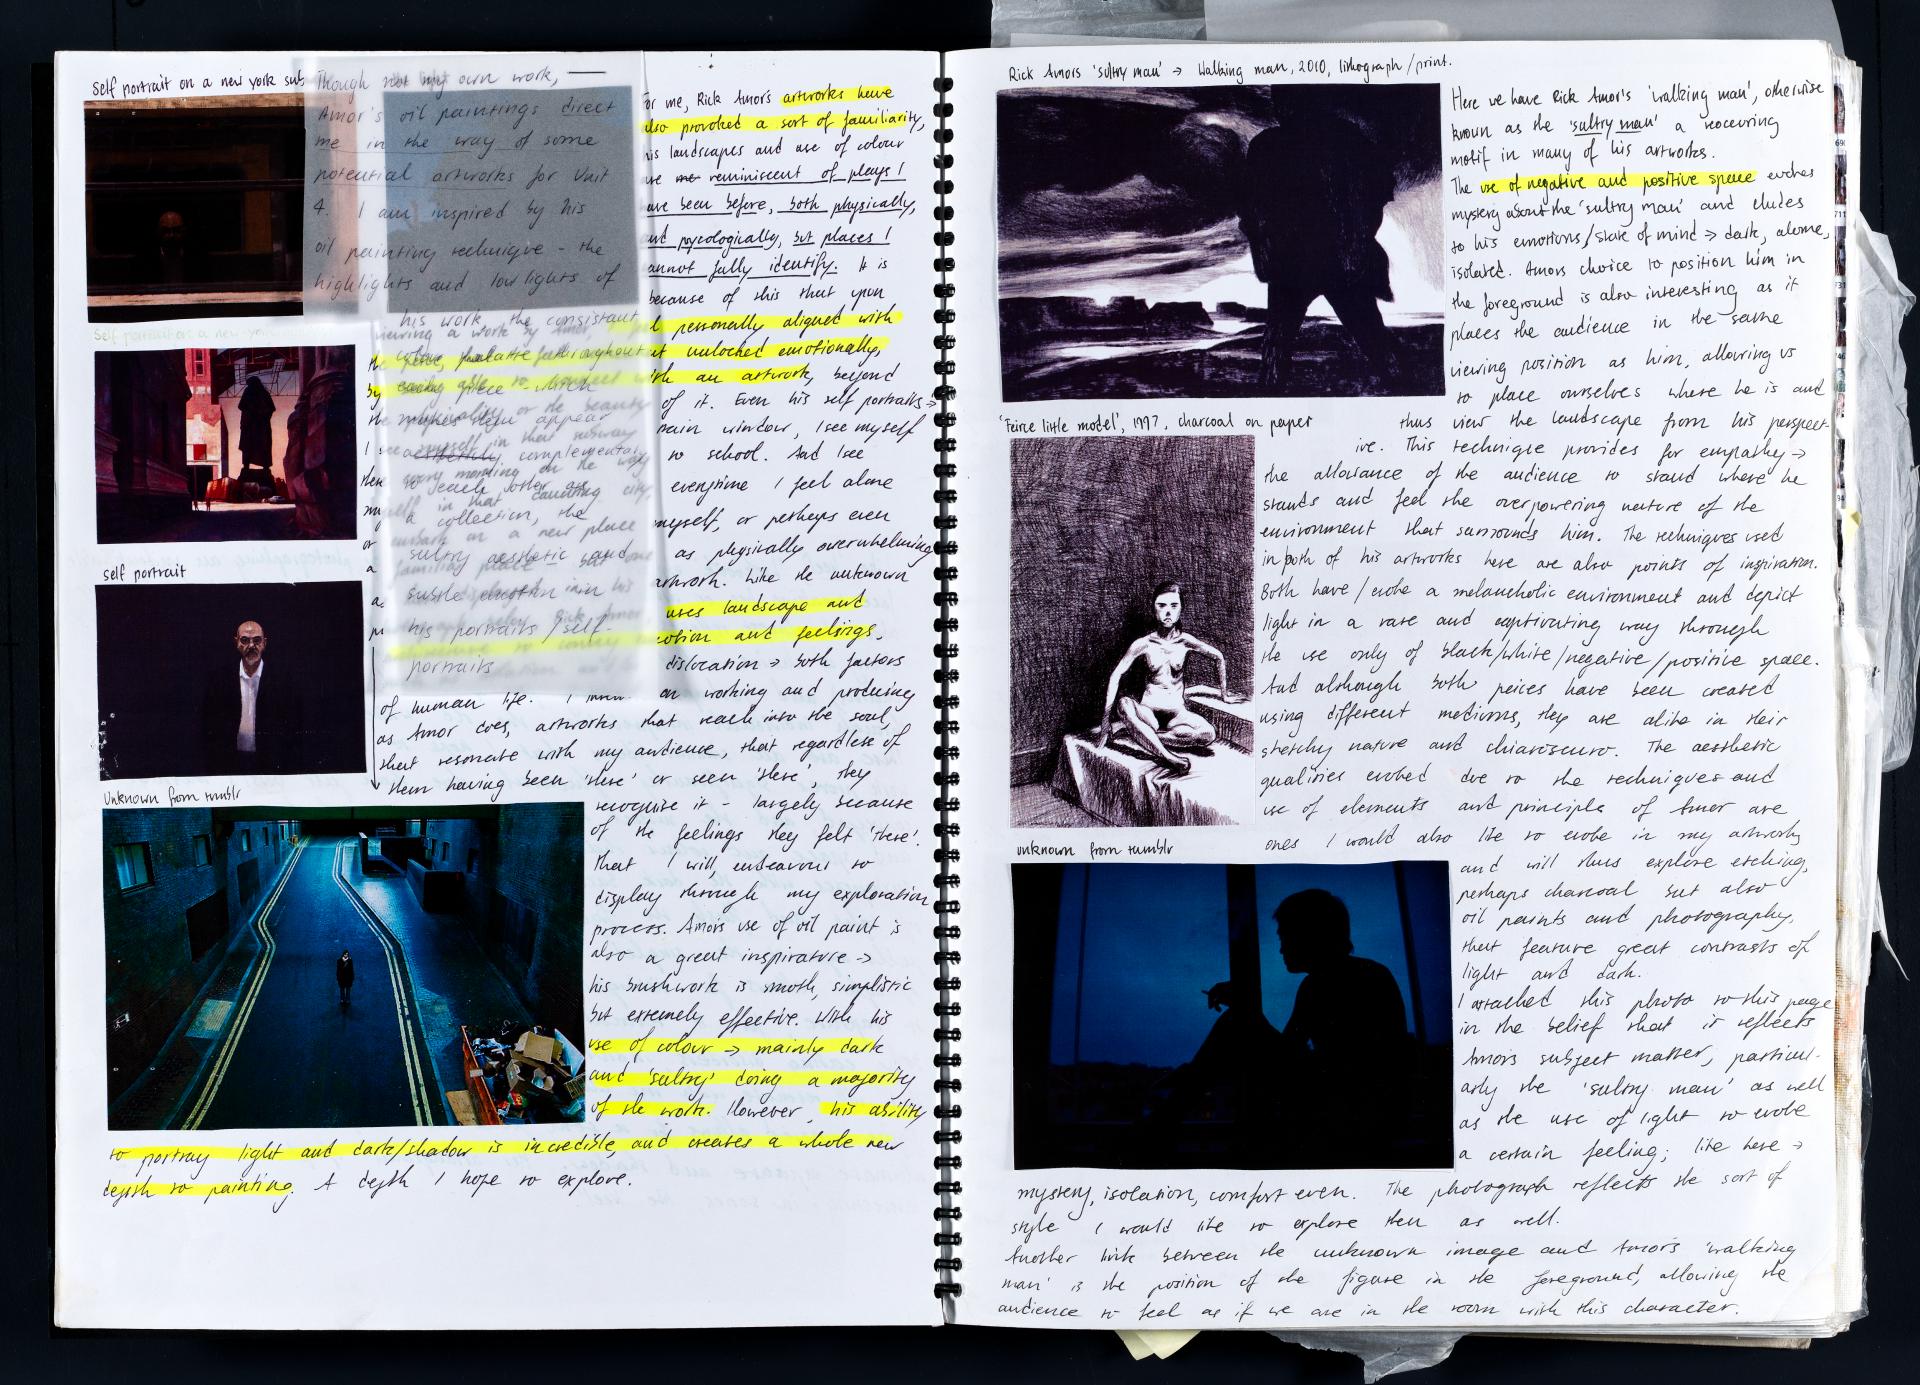 Self portrait on a new york sub
Though not my own work, —
Amor's oil paintings direct
me in the way of some
potential artworks for Unit
4. I am inspired by his
oil painting technique - the
highlights and lowlights of
his work, the consistant
colour palatte throughout
each piece which
makes them appear
complementary
to each other as
a collection, the
sultry aesthetic and
subtle emotion in his
his portraits / self-
portraits
Self portrait on a new york
self portrait
Unknown from tumblr
or me, Rick Amor's artworks have
also provoked a sort of familiarity,
his landscapes and use of colour
are me reminiscent of places I
ave been before, both physically,
and psycologically, but places I
annot fully identify. It is
because of this that upon
viewing a work by Amor I
personally aligned with
the piece, unlocked emotionally,
by being able to connect with an artwork, beyond
the musicality or the beauty of it. Even his self portraits →
I see myself in that subway train window, I see myself
every morning on the way to school. And I see
myself in that daunting city, everytime I feel alone
or embark on a new place myself, or perhaps even
a familiar place but one as physically overwhelming
artwork. Like the unknown
Rick Amor uses landscape and
to convey emotion and feelings,
dislocation → both factors
of human life. I on working and producing
as Amor does, artworks that reach into the soul,
that resonate with my audience, that regardless of
them having been 'there' or seen 'there', they
recognise it - largely because
of the feelings they felt 'there'.
That I will, endeavour to
display through my exploration
process. Amors use of oil paint is
also a great inspirature →
his brushwork is smoth, simplistic
but extremely effective. With his
use of colour → mainly dark
and 'sultry' doing a majority
of the work. However, his ability
to portray light and dark/shadow is incredible, and creates a whole new
depth to painting. A depth I hope to explore.
Rick Amors 'sultry man' → Walking man, 2010, lithograph/print.
Here we have Rick Amor's 'walking man', otherwise
known as the 'sultry man' a reoccuring
motif in many of his artworks.
The use of negative and positive space evokes
mystery about the 'sultry man' and eludes
to his emotions/state of mind → dark, alone,
isolated. Amors choice to position him in
the foreground is also interesting as it
places the audience in the same
viewing position as him, allowing us
to place ourselves where he is and
thus view the landscape from his perspect-
ive. This technique provides for empathy →
'Feirce little model', 1997, charcoal on paper
the allowance of the audience to stand where he
stands and feel the overpowering nature of the
environment that surrounds him. The techniques used
in both of his artworks here are also points of inspiration.
Both have/evoke a melancholic environment and depict
light in a rare and captivating way through
the use only of black/white/negative/positive space.
And although both peices have been created
using different mediums, they are alike in their
sketchy nature and chiaroscuro. The aesthetic
qualities evoked due to the techniques and
use of elements and principle of Amor are
ones I would also like to evoke in my artworks
unknown from tumblr
and will thus explore etching,
perhaps charcoal but also
oil paints and photography,
that feature great contrasts of
light and dark.
I attached this photo to this page
in the belief that it reflects
Amors subject matter, particul-
arly the 'sultry man' as well
as the use of light to evoke
a certain feeling; like here →
mystery, isolation, comfort even. The photograph reflects the sort of
style I would like to explore then as well.
Another link between the unknown image and Amors 'walking
man' is the position of the figure in the foreground, allowing the
audience to feel as if we are in the room with this character.